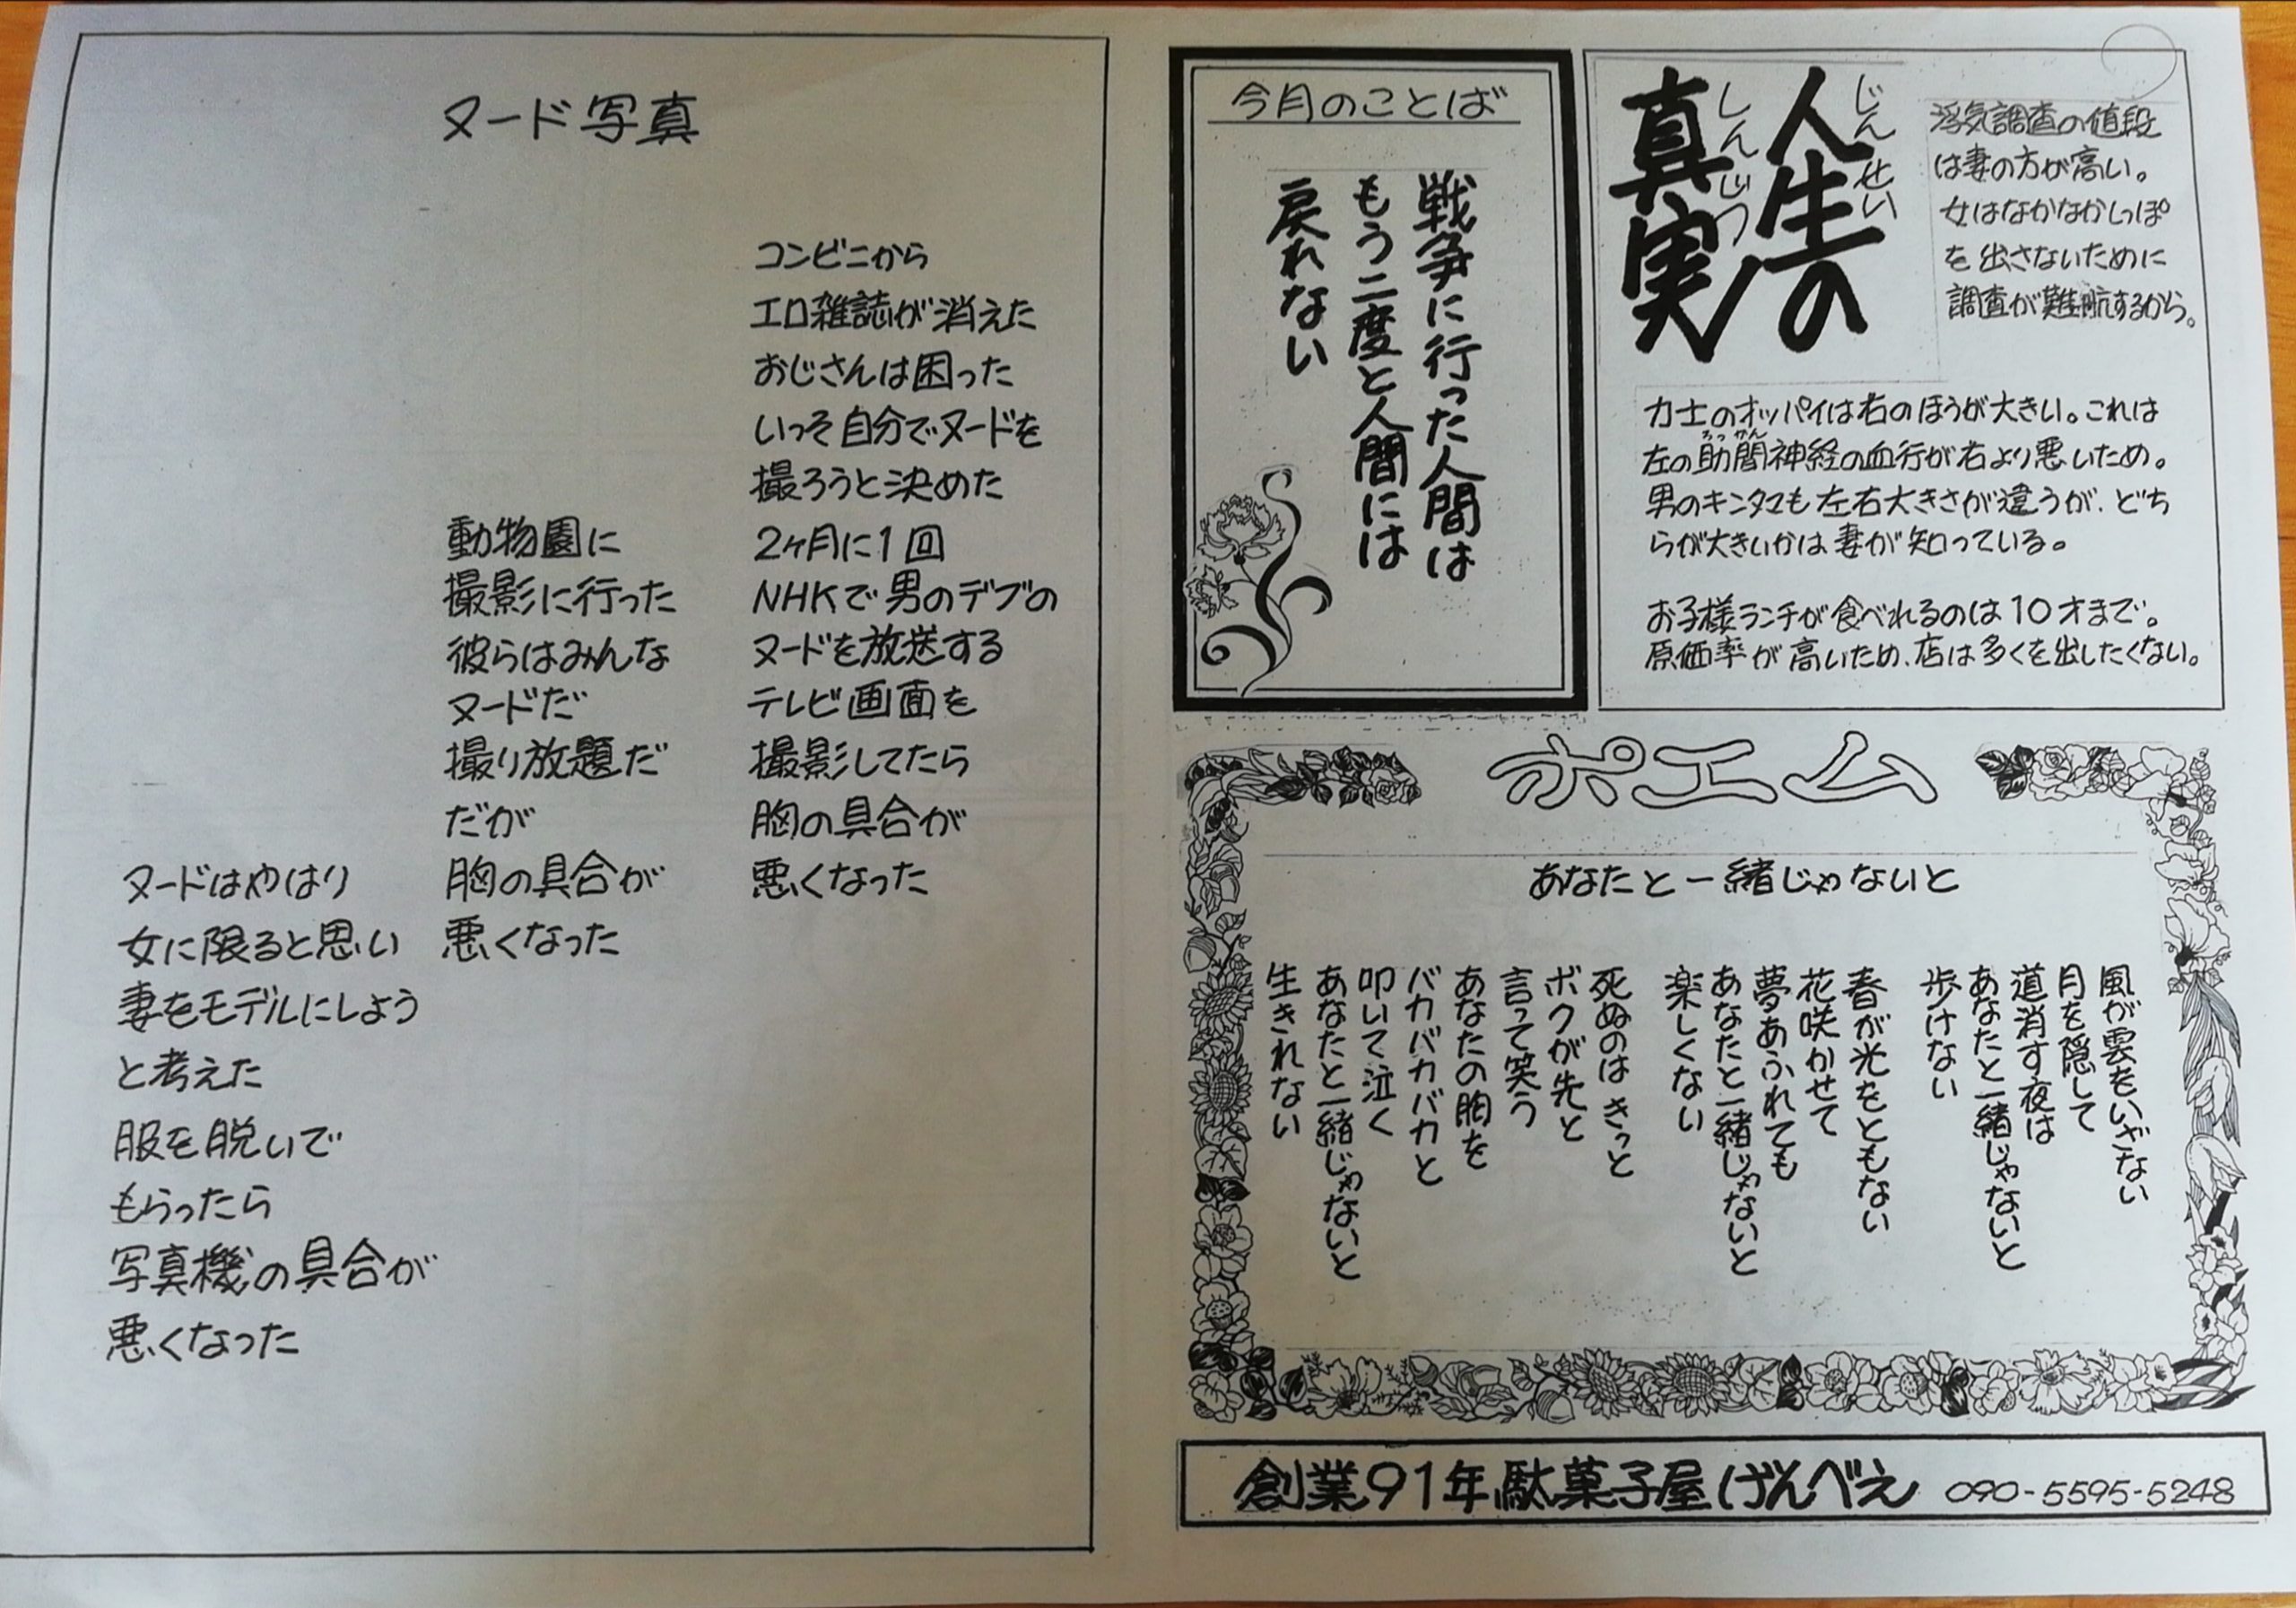 人生の
じんせい
真実
しんじつ
浮気調査の値段
は妻の方が高い。
女はなかなかしっぽ
を出さないために
調査が難航するから。
力士のオッパイは右のほうが大きい。これは
左の肋間神経の血行が右より悪いため。
ろっかん
男のキンタマも左右大きさが違うが、どち
らが大きいかは妻が知っている。
お子様ランチが食べれるのは10才まで。
原価率が高いため、店は多くを出したくない。
今月のことば
戦争に行った人間は
もう二度と人間には
戻れない
ポエム
あなたと一緒じゃないと
風が雲をいざない
月を隠して
道消す夜は
あなたと一緒じゃないと
歩けない
春が光をともない
花咲かせて
夢あふれても
あなたと一緒じゃないと
楽しくない
死ぬのはきっと
ボクが先と
言って笑う
あなたの胸を
バカバカバカと
叩いて泣く
あなたと一緒じゃないと
生きれない
創業91年駄菓子屋げんべえ 090-5595-5248
ヌード写真
コンビニから
エロ雑誌が消えた
おじさんは困った
いっそ自分でヌードを
撮ろうと決めた
2ヶ月に1回
NHKで男のデブの
ヌードを放送する
テレビ画面を
撮影してたら
胸の具合が
悪くなった
動物園に
撮影に行った
彼らはみんな
ヌードだ
撮り放題だ
だが
胸の具合が
悪くなった
ヌードはやはり
女に限ると思い
妻をモデルにしよう
と考えた
服を脱いで
もらったら
写真機の具合が
悪くなった